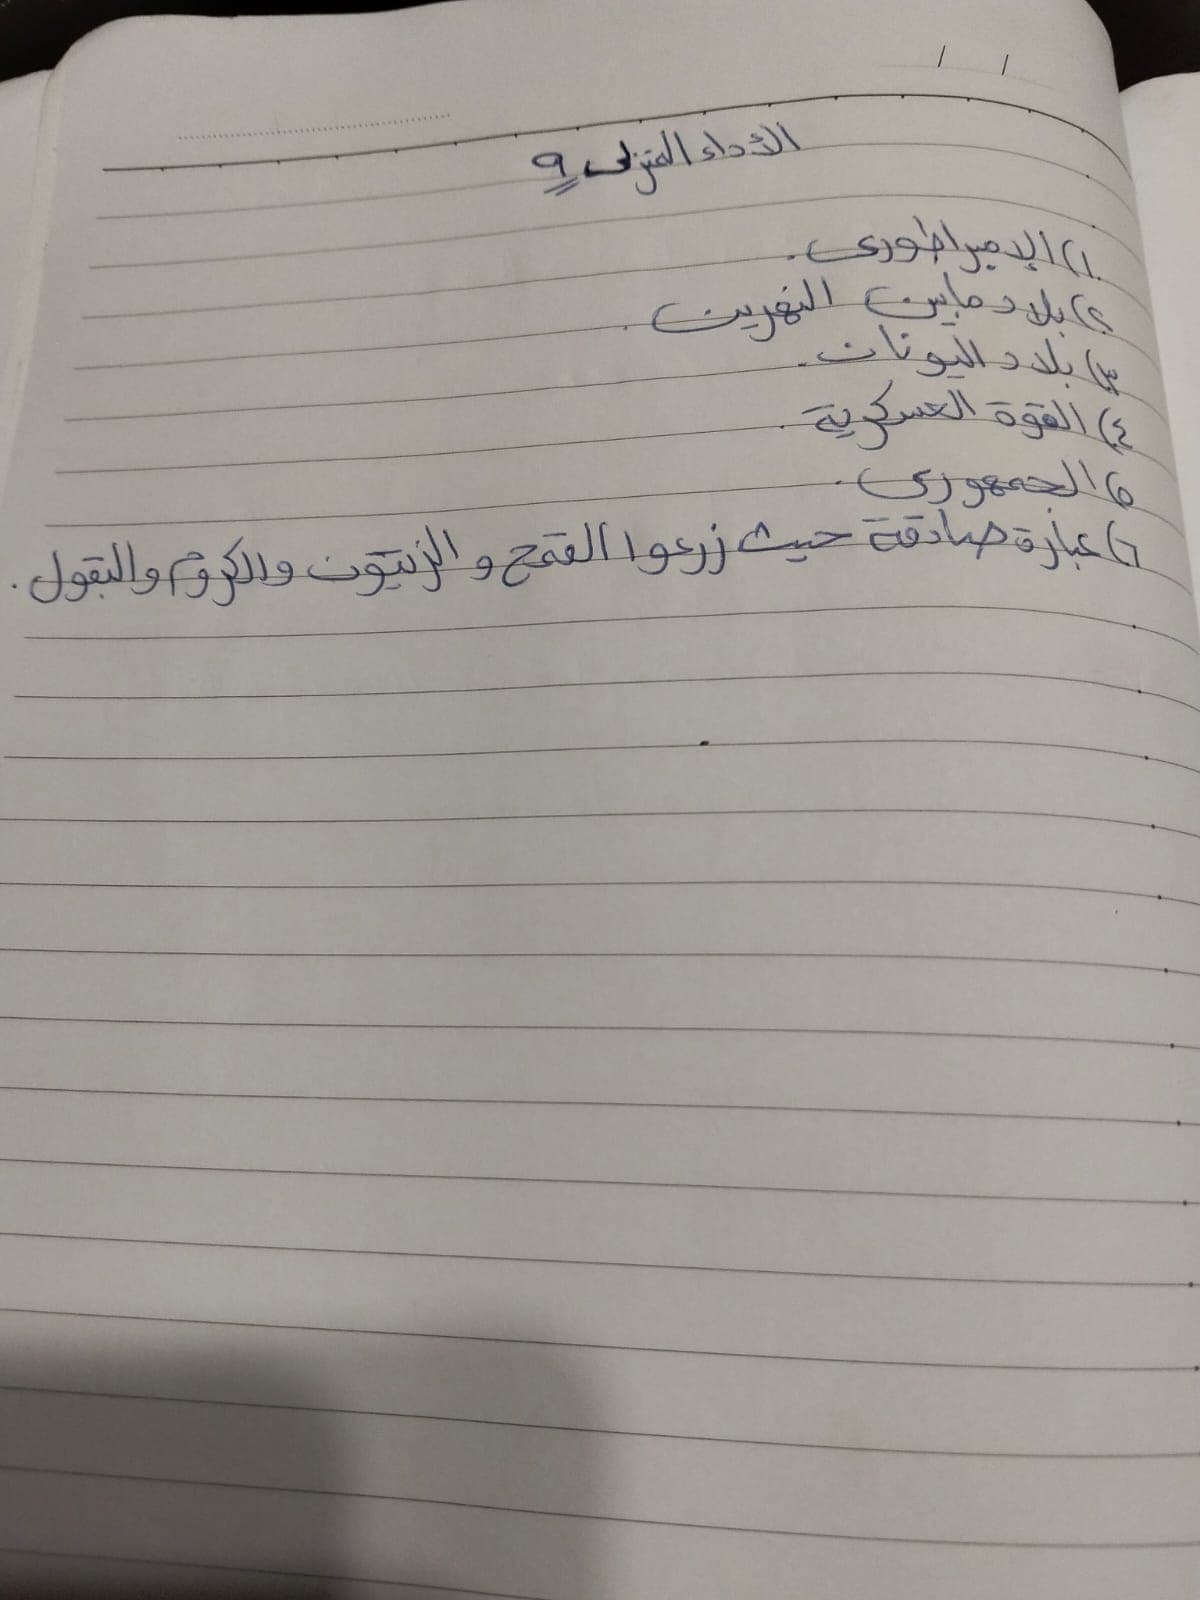 / /
الأداء المنزلى ٩
١) الإمبراطورى.
٢) بلاد مابين النهرين.
٣) بلاد اليونان.
٤) القوة العسكرية.
٥) الجمهورى.
٦) عبارة صادقة حيث زرعوا القمح والزيتون والكروم والبقول.